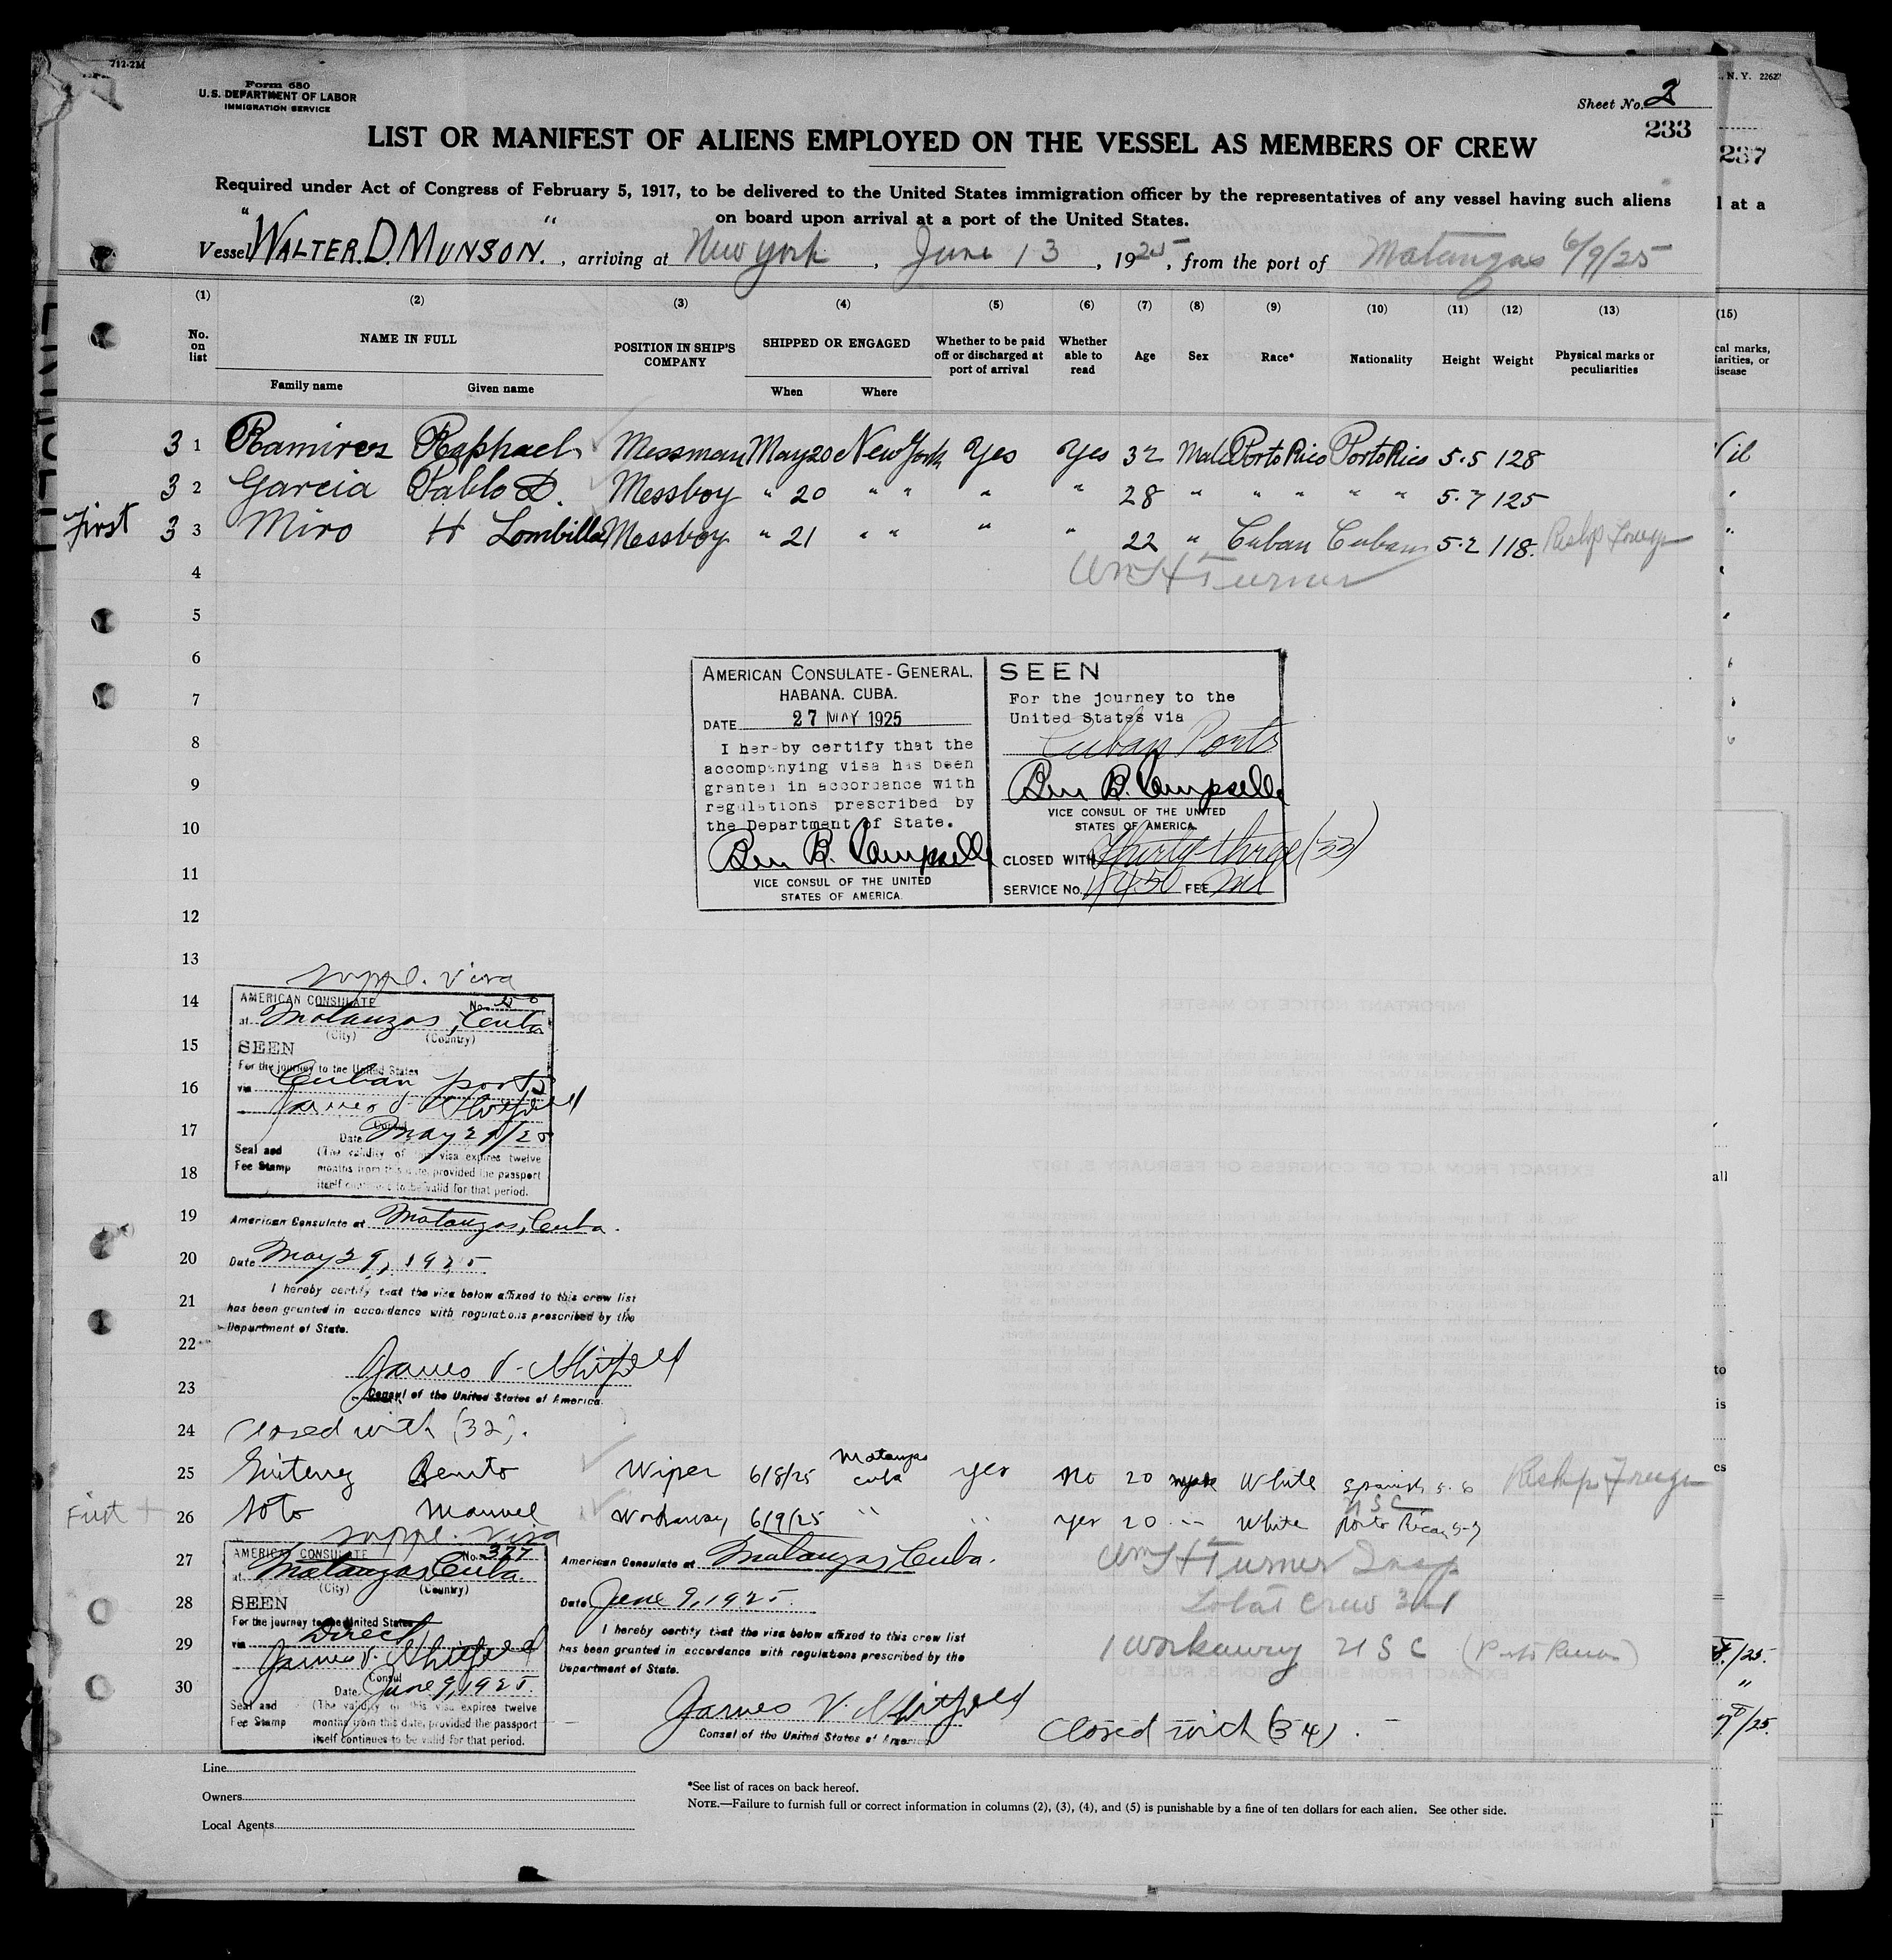 212-2M
Form 680
U.S. DEPARTMENT OF LABOR
IMMIGRATION SERVICE
Sheet No. 2
233
LIST OR MANIFEST OF ALIENS EMPLOYED ON THE VESSEL AS MEMBERS OF CREW
Required under Act of Congress of February 5, 1917, to be delivered to the United States immigration officer by the representatives of any vessel having such aliens
on board upon arrival at a port of the United States.
Vessel "WALTER. D. MUNSON.", arriving at New York, June 13, 1925, from the port of Matanzas 6/9/25
(1) (2) (3) (4) (5) (6) (7) (8) (9) (10) (11) (12) (13)
No. on list NAME IN FULL POSITION IN SHIP'S COMPANY SHIPPED OR ENGAGED Whether to be paid off or discharged at port of arrival Whether able to read Age Sex Race* Nationality Height Weight Physical marks or peculiarities
Family name Given name When Where
3 1 Ramirez Raphael Messman May 20 New York Yes Yes 32 Male Porto Rico Porto Rico 5.5 128
3 2 Garcia Pablo D. Messboy " 20 " " " " 28 " " " " " 5.7 125
First 3 3 Miro H Lombilla Messboy " 21 " " " " 22 " Cuban Cuban 5.2 118. Reshp Foreign
4 Wm H Turner
5
6
7
8
9
10
11
12
AMERICAN CONSULATE-GENERAL.
HABANA. CUBA.
DATE 27 MAY 1925
I hereby certify that the
accompanying visa has been
granted in accordance with
regulations prescribed by
the Department of State.
Ben B.
VICE CONSUL OF THE UNITED
STATES OF AMERICA.
SEEN
For the journey to the
United States via
Cuban Ports
Ben B.
VICE CONSUL OF THE UNITED
STATES OF AMERICA.
CLOSED WITH Thirty-three (33)
SERVICE No. FEE nil
13 suppl. visa
14 AMERICAN CONSULATE No.
at Matanzas, Cuba
(City) (Country)
15 SEEN
For the journey to the United States
16 via Cuban ports
James V.
Consul
17 Date May 29/25
Seal and Fee Stamp (The validity of this visa expires twelve
18 months from this date, provided the passport
itself continues to be valid for that period.
19 American Consulate at Matanzas, Cuba.
20 Date May 29, 1925
21 I hereby certify that the visa below affixed to this crew list
has been granted in accordance with regulations prescribed by the
Department of State.
22 James V.
23 Consul of the United States of America.
24 Closed with (32).
25 Benito Wiper 6/8/25 Matanzas Cuba yes No 20 male White Spanish 5.6 Reshp Foreign
First + 26 Soto Manuel Workaway 6/9/25 " " yes 20 " White USC Porto Rican 5-7
suppl. visa
27 AMERICAN CONSULATE No. 377
at Matanzas Cuba
(City) (Country)
28 SEEN
For the journey to the United States
29 via Direct
James V.
Consul
30 Date June 9, 1925.
Seal and Fee Stamp (The validity of this visa expires twelve
months from this date, provided the passport
itself continues to be valid for that period.
American Consulate at Matanzas, Cuba.
Date June 9, 1925.
I hereby certify that the visa below affixed to this crew list
has been granted in accordance with regulations prescribed by the
Department of State.
James V.
Consul of the United States of America
Wm H Turner Insp
Total Crew
1 Workaway USC (Porto Rican)
Closed with (34).
Line
Owners
Local Agents
*See list of races on back hereof.
NOTE.—Failure to furnish full or correct information in columns (2), (3), (4), and (5) is punishable by a fine of ten dollars for each alien. See other side.
N. Y.
237
at a
(15)
cal marks,
iarities, or
isease
all
to
is